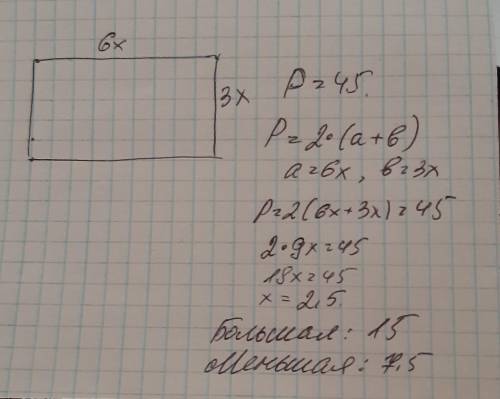 6x
3x
P=45.
P=2·(a+b)
a=6x, b=3x
P=2(6x+3x)=45
2·9x=45
18x=45
x=2,5.
Большая: 15
Меньшая: 7.5